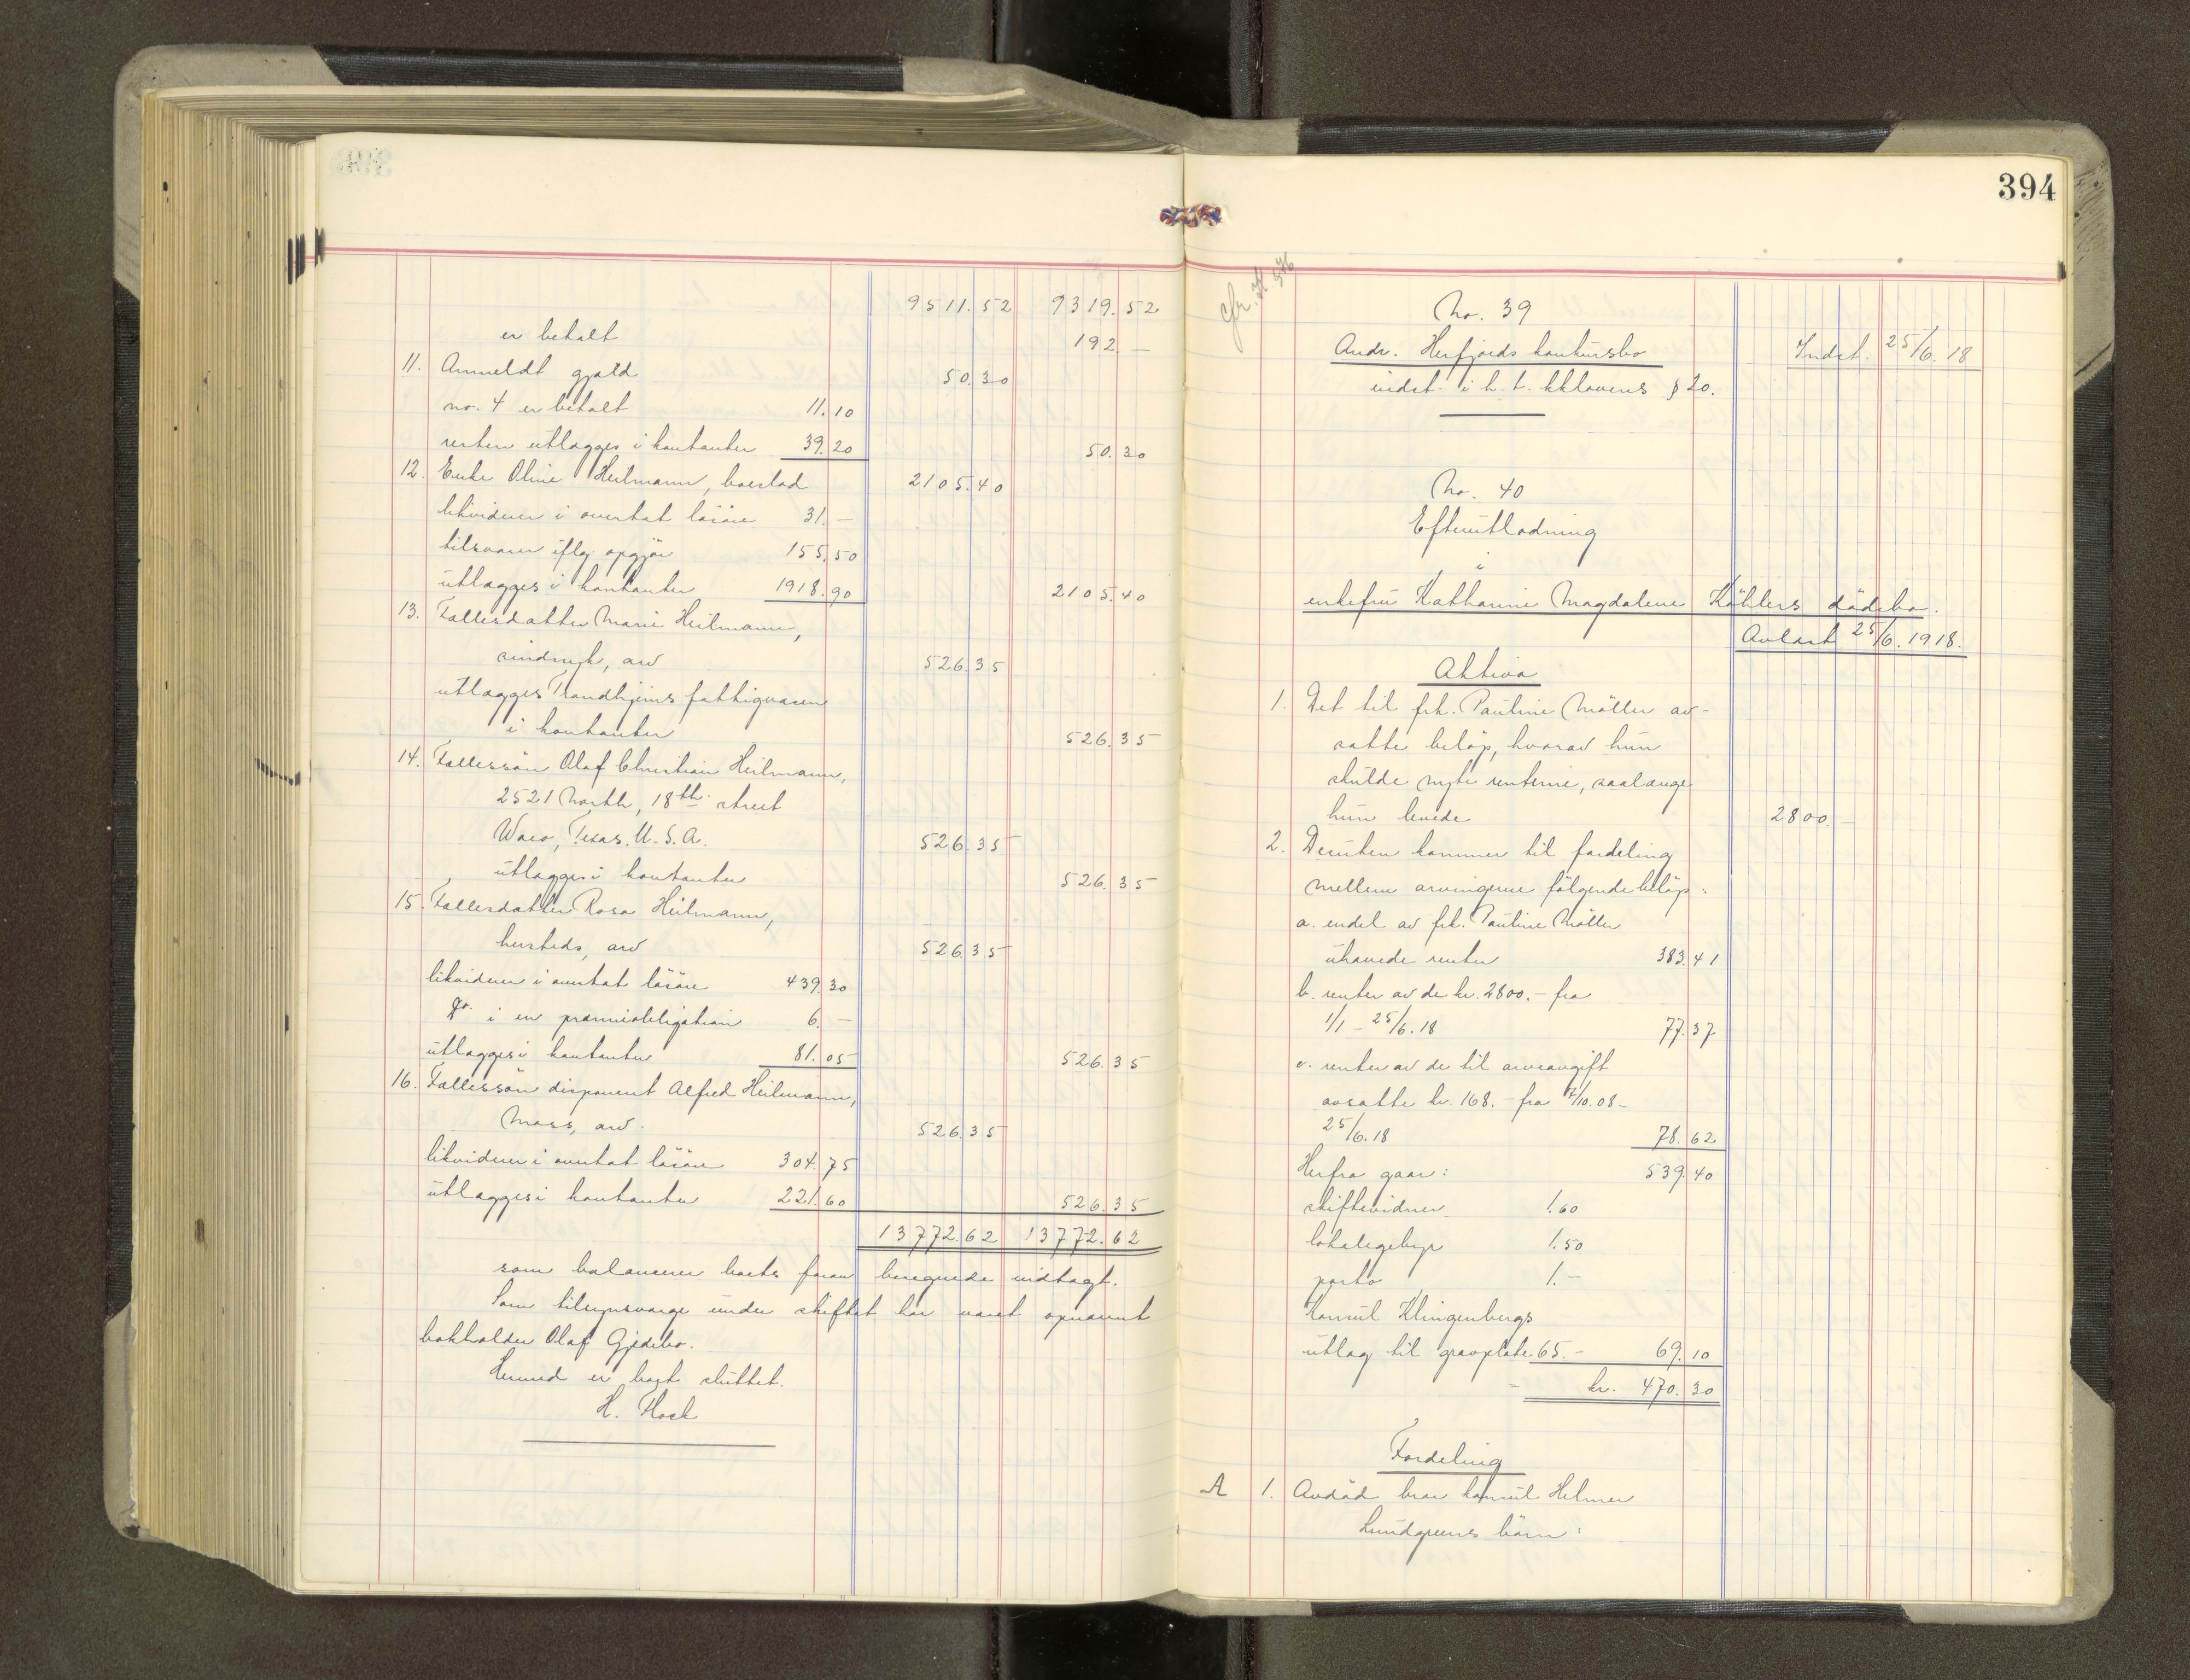 9511.52 9319.52
er betalt 192.—
11. Anmeldt gjæld 50.30
no. 4 er betalt 11.10
resten utlægges i kontanter 39.20 50.30
12. Enke Oline Heilmann, boeslod 2105.40
likviderer i overtat løsøre 31.—
tilsvarer iflg opgjør 155.50
utlægges i kontanter 1918.90 2105.40
13. Fællesdatter Marie Heilmann,
sindsyk, arv 526.35
utlægges Trondhjems fattigvæsen
i kontanter 526.35
14. Fællessøn Olaf Christian Heilmann,
2521 North, 18th street
Waco, Texas. U.S.A. 526.35
utlægges i kontanter 526.35
15. Fællesdatter Rosa Heilmann,
hersteds, arv 526.35
likviderer i overtat løsøre 439.30
Do. i en præmieobligation 6.—
utlægges i kontanter 81.05 526.35
16. Fællessøn disponent Alfred Heilmann,
Moss, arv. 526.35
likviderer i overtat løsøre 304.75
utlægges i kontanter 221.60 526.35
13772.62 13772.62
som balancerer boets foran beregnede indtægt.
Som tilsynsværge under skiftet har været opnævnt
bokholder Olaf Gjedebo.
Hermed er boet sluttet.
H. Flock
394
Cfr. H 576
No. 39
Andr. Herfjords konkursbo Indst. 25/6.18
indst. i h. t. kklovens § 20.
No. 40
Efterutlodning
i
enkefru Kathrine Magdalene Köhlers dødsbo.
Avlæst 25/6.1918.
Aktiva
1. Det til frk. Pauline Møller av-
satte beløp, hvorav hun
skulde nyte renterne, saalænge
hun levede 2800.—
2. Desuten kommer til fordeling
mellem arvingerne følgende beløp:
a. endel av frk. Pauline Møller
uhævede renter 383.41
b. renter av de kr. 2800.- fra
1/1 - 25/6.18 77.37
c. renter av de til arveavgift
avsatte kr. 168.- fra 7/10.08 -
25/6.18 78.62
Herfra gaar: 539.40
skiftevidner 1.60
lokalegebyr 1.50
porto 1.-
Konsul Klingenbergs
utlæg til gravplate 65.- 69.10
= kr. 470.30
Fordeling
A 1. Avdød bror konsul Helmer
Lundgreens børn: